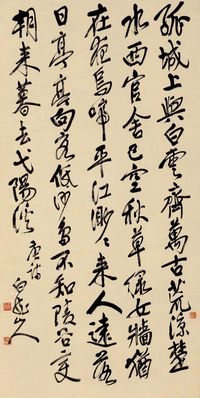 孤城上與白雲齊萬古荒涼楚
水西官舍已空秋草綠女牆猶
在夜烏啼平江渺々來人遠落
日亭亭向客低沙鳥不知陵谷變
朝來暮去弋陽溪 唐詩
山人